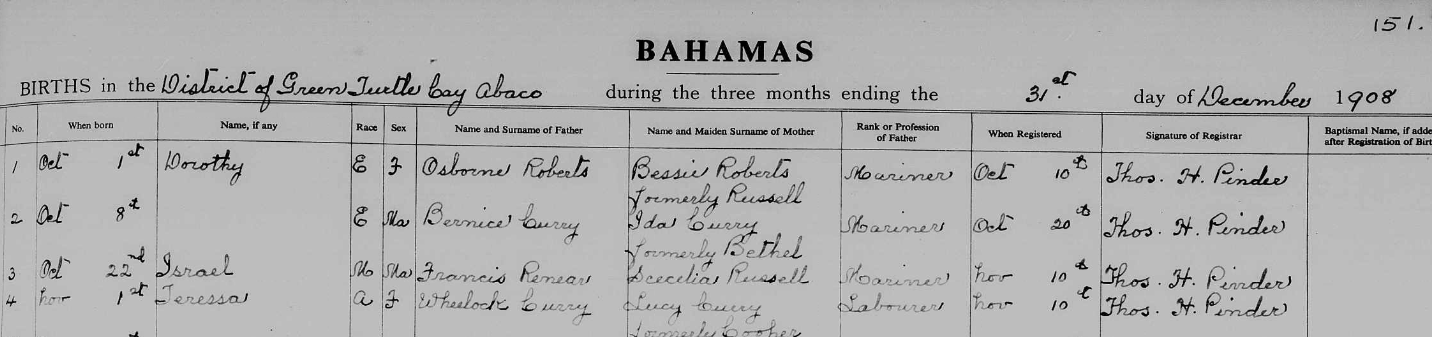 151.
BAHAMAS
BIRTHS in the District of Green Turtle Cay Abaco during the three months ending the 31st day of December 1908
No. When born Name, if any Race Sex Name and Surname of Father Name and Maiden Surname of Mother Rank or Profession of Father When Registered Signature of Registrar Baptismal Name, if adde after Registration of Birt
1 Oct 1st Dorothy E F Osborne Roberts Bessie Roberts Mariner Oct 10th Thos. H. Pinder
formerly Russell
2 Oct 8th E Ma Bernice Curry Ida Curry Mariner Oct 20th Thos. H. Pinder
formerly Bethel
3 Oct 22nd Israel M Ma Francis Renear Scecelia Russell Mariner Nov 10th Thos. H. Pinder
4 Nov 1st Teressa A F Wheelock Curry Lucy Curry Labourer Nov 10t Thos. H. Pinder
formerly Cooper